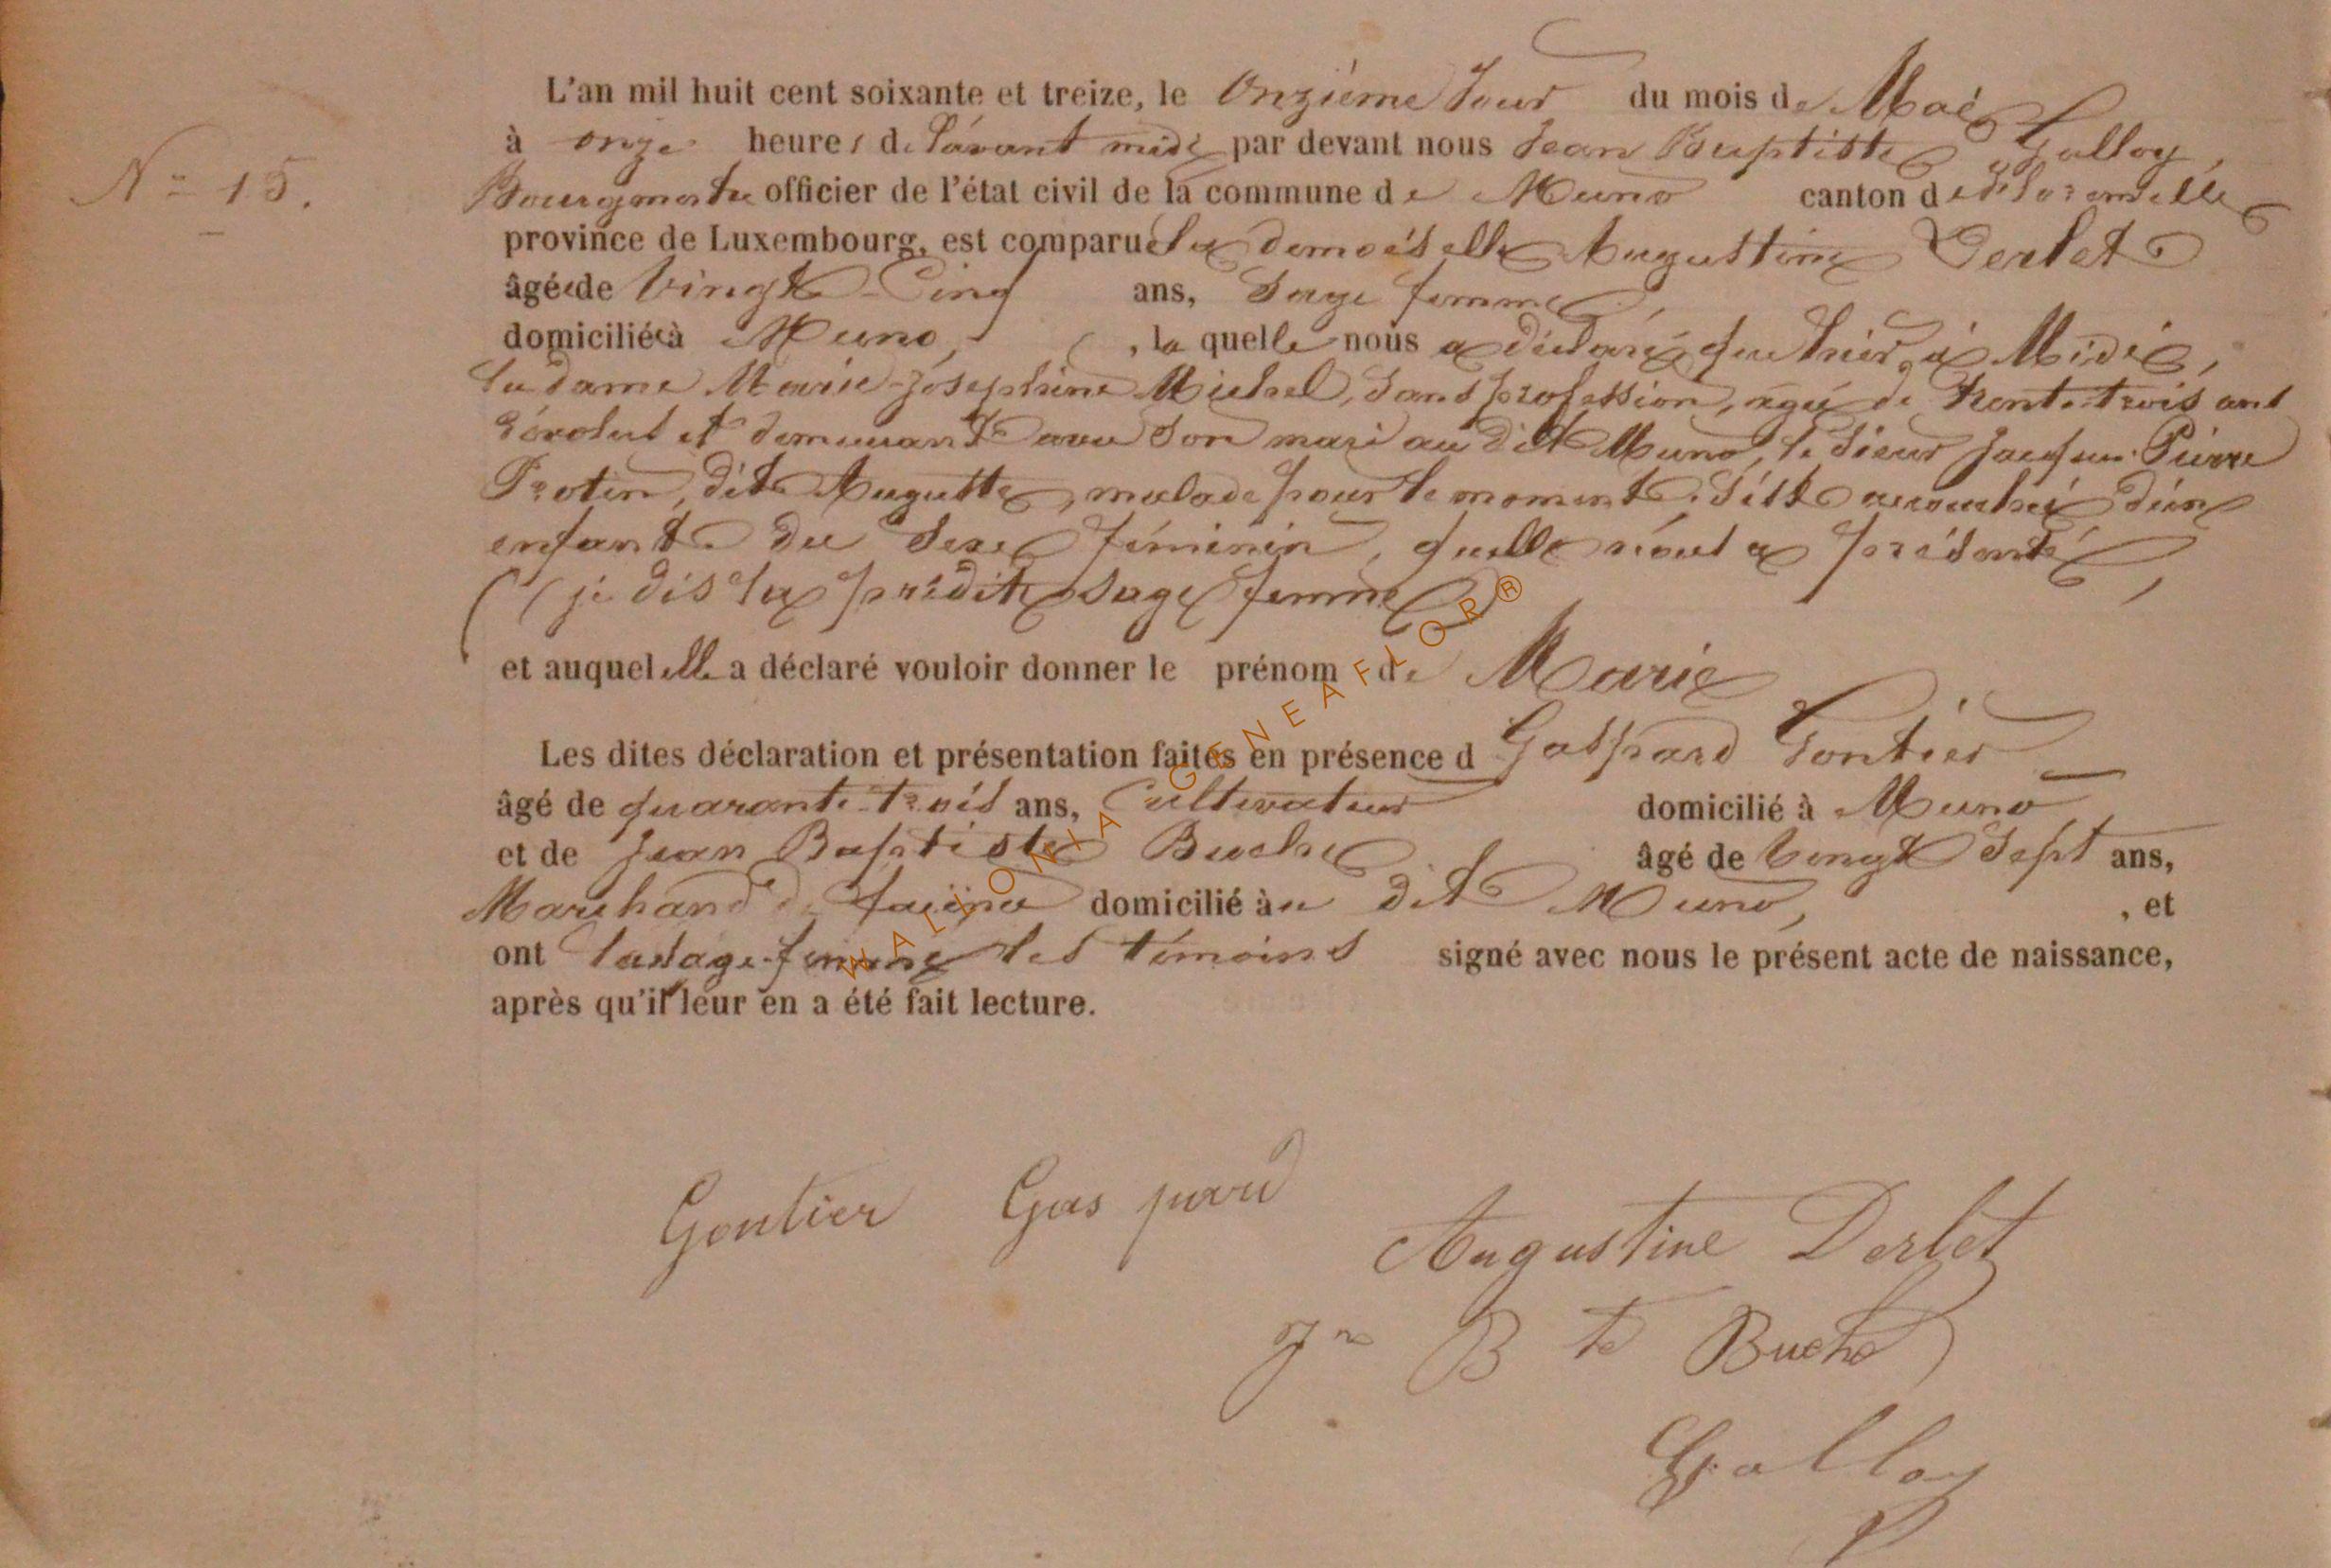 L'an mil huit cent soixante et treize, le Onzième Jour du mois de Mai
à onze heures de l'avant midi par devant nous Jean Baptiste Galloy,
N° 15.
Bourgmestre officier de l'état civil de la commune de Muno canton de Florenville
province de Luxembourg, est comparue la demoiselle Augustine Derlet
âgée de Vingt-Cinq ans, Sage femme,
domiciliée à Muno, la quelle nous a déclaré que hier, à Midi,
la dame Marie-Joséphine Michel, sans profession, agée de trente-trois ans
révolus et demeurant avec son mari au dit Muno, le Sieur Jacques Pierre
Protin, dit Auguste, malade pour le moment, s'est accouchée d'un
enfant du sexe féminin, quelle nous a présenté,
(je dis la prédite sage femme)
et auquel elle a déclaré vouloir donner le prénom de Marie
Les dites déclaration et présentation faites en présence d Gaspard Gontier
âgé de quarante-trois ans, Cultivateur domicilié à Muno
et de Jean Baptiste Buche âgé de Vingt Sept ans,
Marchand de faïence domicilié au dit Muno, , et
ont la sage-femme les témoins signé avec nous le présent acte de naissance,
après qu'il leur en a été fait lecture.
WALLONIA GENEAFLOR ®
Gontier Gaspard
Augustine Derlet
Jn Bte Buche
Galloy